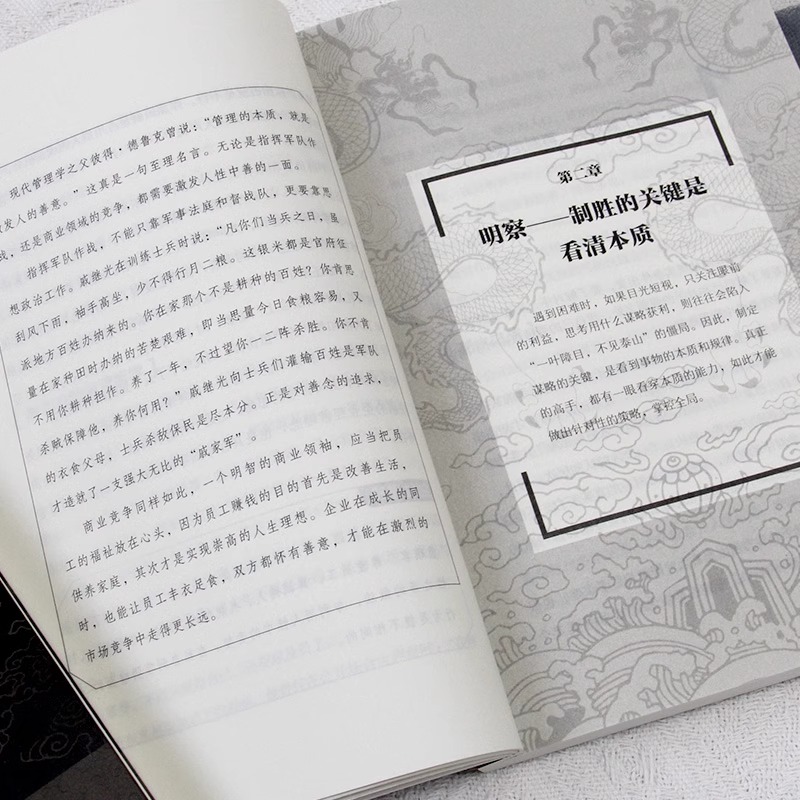 现代管理学之父彼得·德鲁克曾说：“管理的本质，就是
激发人的善意。”这真是一句至理名言。无论是指挥军队作
战，还是商业领域的竞争，都需要激发人性中善的一面。
指挥军队作战，不能只靠军事法庭和督战队，更要靠思
想政治工作。戚继光在训练士兵时说：“凡你们当兵之日，虽
刮风下雨，袖手高坐，少不得行月二粮。这银米都是官府征
派地方百姓办纳来的。你在家那个不是耕种的百姓？你肯思
量在家种田时办纳的苦楚艰难，即当思量今日食粮容易，又
不用你耕种担作。养了一年，不过望你一二阵杀胜。你不肯
杀贼保障他，养你何用？”戚继光向士兵们灌输百姓是军队
的衣食父母，士兵杀敌保民是尽本分。正是对善念的追求，
才造就了一支强大无比的“戚家军”。
商业竞争同样如此，一个明智的商业领袖，应当把员
工的福祉放在心头，因为员工赚钱的目的首先是改善生活，
供养家庭，其次才是实现崇高的人生理想。企业在成长的同
时，也能让员工丰衣足食，双方都怀有善意，才能在激烈的
市场竞争中走得更长远。
第二章
明察——制胜的关键是
看清本质
遇到困难时，如果目光短视，只关注眼前
的利益，思考用什么谋略获利，则往往会陷入
“一叶障目，不见泰山”的僵局。因此，制定
谋略的关键，是看到事物的本质和规律。真正
的高手，都有一眼看穿本质的能力，如此才能
做出针对性的策略，掌控全局。